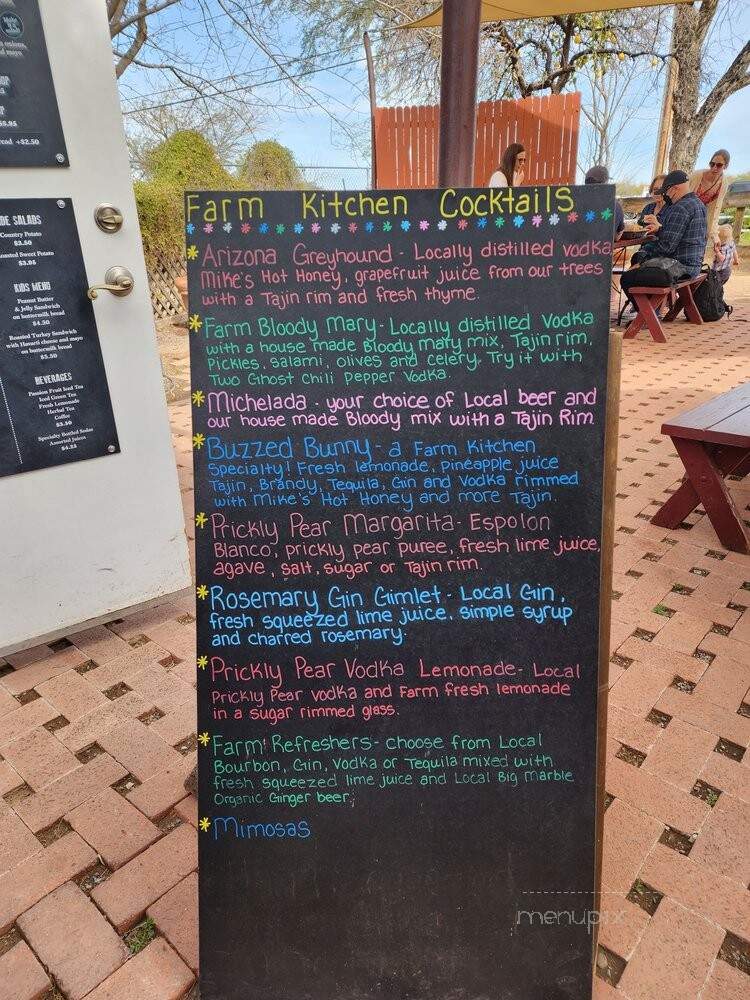 read +2.50
DE SALADS
Country Potato
$3.50
Roasted Sweet Potato
$3.95
KIDS MENU
Peanut Butter
& Jelly Sandwich
on buttermilk bread
$4.50
Roasted Turkey Sandwich
with Havarti cheese and mayo
on buttermilk bread
$5.50
BEVERAGES
Passion Fruit Iced Tea
Iced Green Tea
Fresh Lemonade
Herbal Tea
Coffee
$3.50
Specialty Bottled Sodas
Assorted Juices
$4.25
Farm Kitchen Cocktails
* Arizona Greyhound - Locally distilled vodka
Mike's Hot Honey, grapefruit juice from our trees
with a Tajin rim and fresh thyme
* Farm Bloody Mary - Locally distilled Vodka
with a house made Bloody mary mix, Tajin rim,
Pickles, salami, olives and celery, Try it with
Two Ghost chili pepper Vodka.
* Michelada - your choice of Local beer and
our house made Bloody mix with a Tajin Rim
* Buzzed Bunny - a Farm Kitchen
Specialty! Fresh lemonade, pineapple juice
Tajin, Brandy, Tequila, Gin and Vodka rimmed
with Mike's Hot Honey and more Tajin.
* Prickly Pear Margarita - Espolon
Blanco, prickly pear puree, fresh lime juice,
agave, salt, sugar or Tajin rim.
* Rosemary Gin Gimlet - Local Gin,
fresh squeezed lime juice, simple syrup
and charred rosemary.
* Prickly Pear Vodka Lemonade - Local
Prickly Pear vodka and Farm fresh lemonade
in a sugar rimmed glass.
* Farm! Refreshers - choose from Local
Bourbon, Gin, Vodka or Tequila mixed with
fresh squeezed lime juice and Local Big Marble
Organic Ginger beer.
* Mimosas
menupix